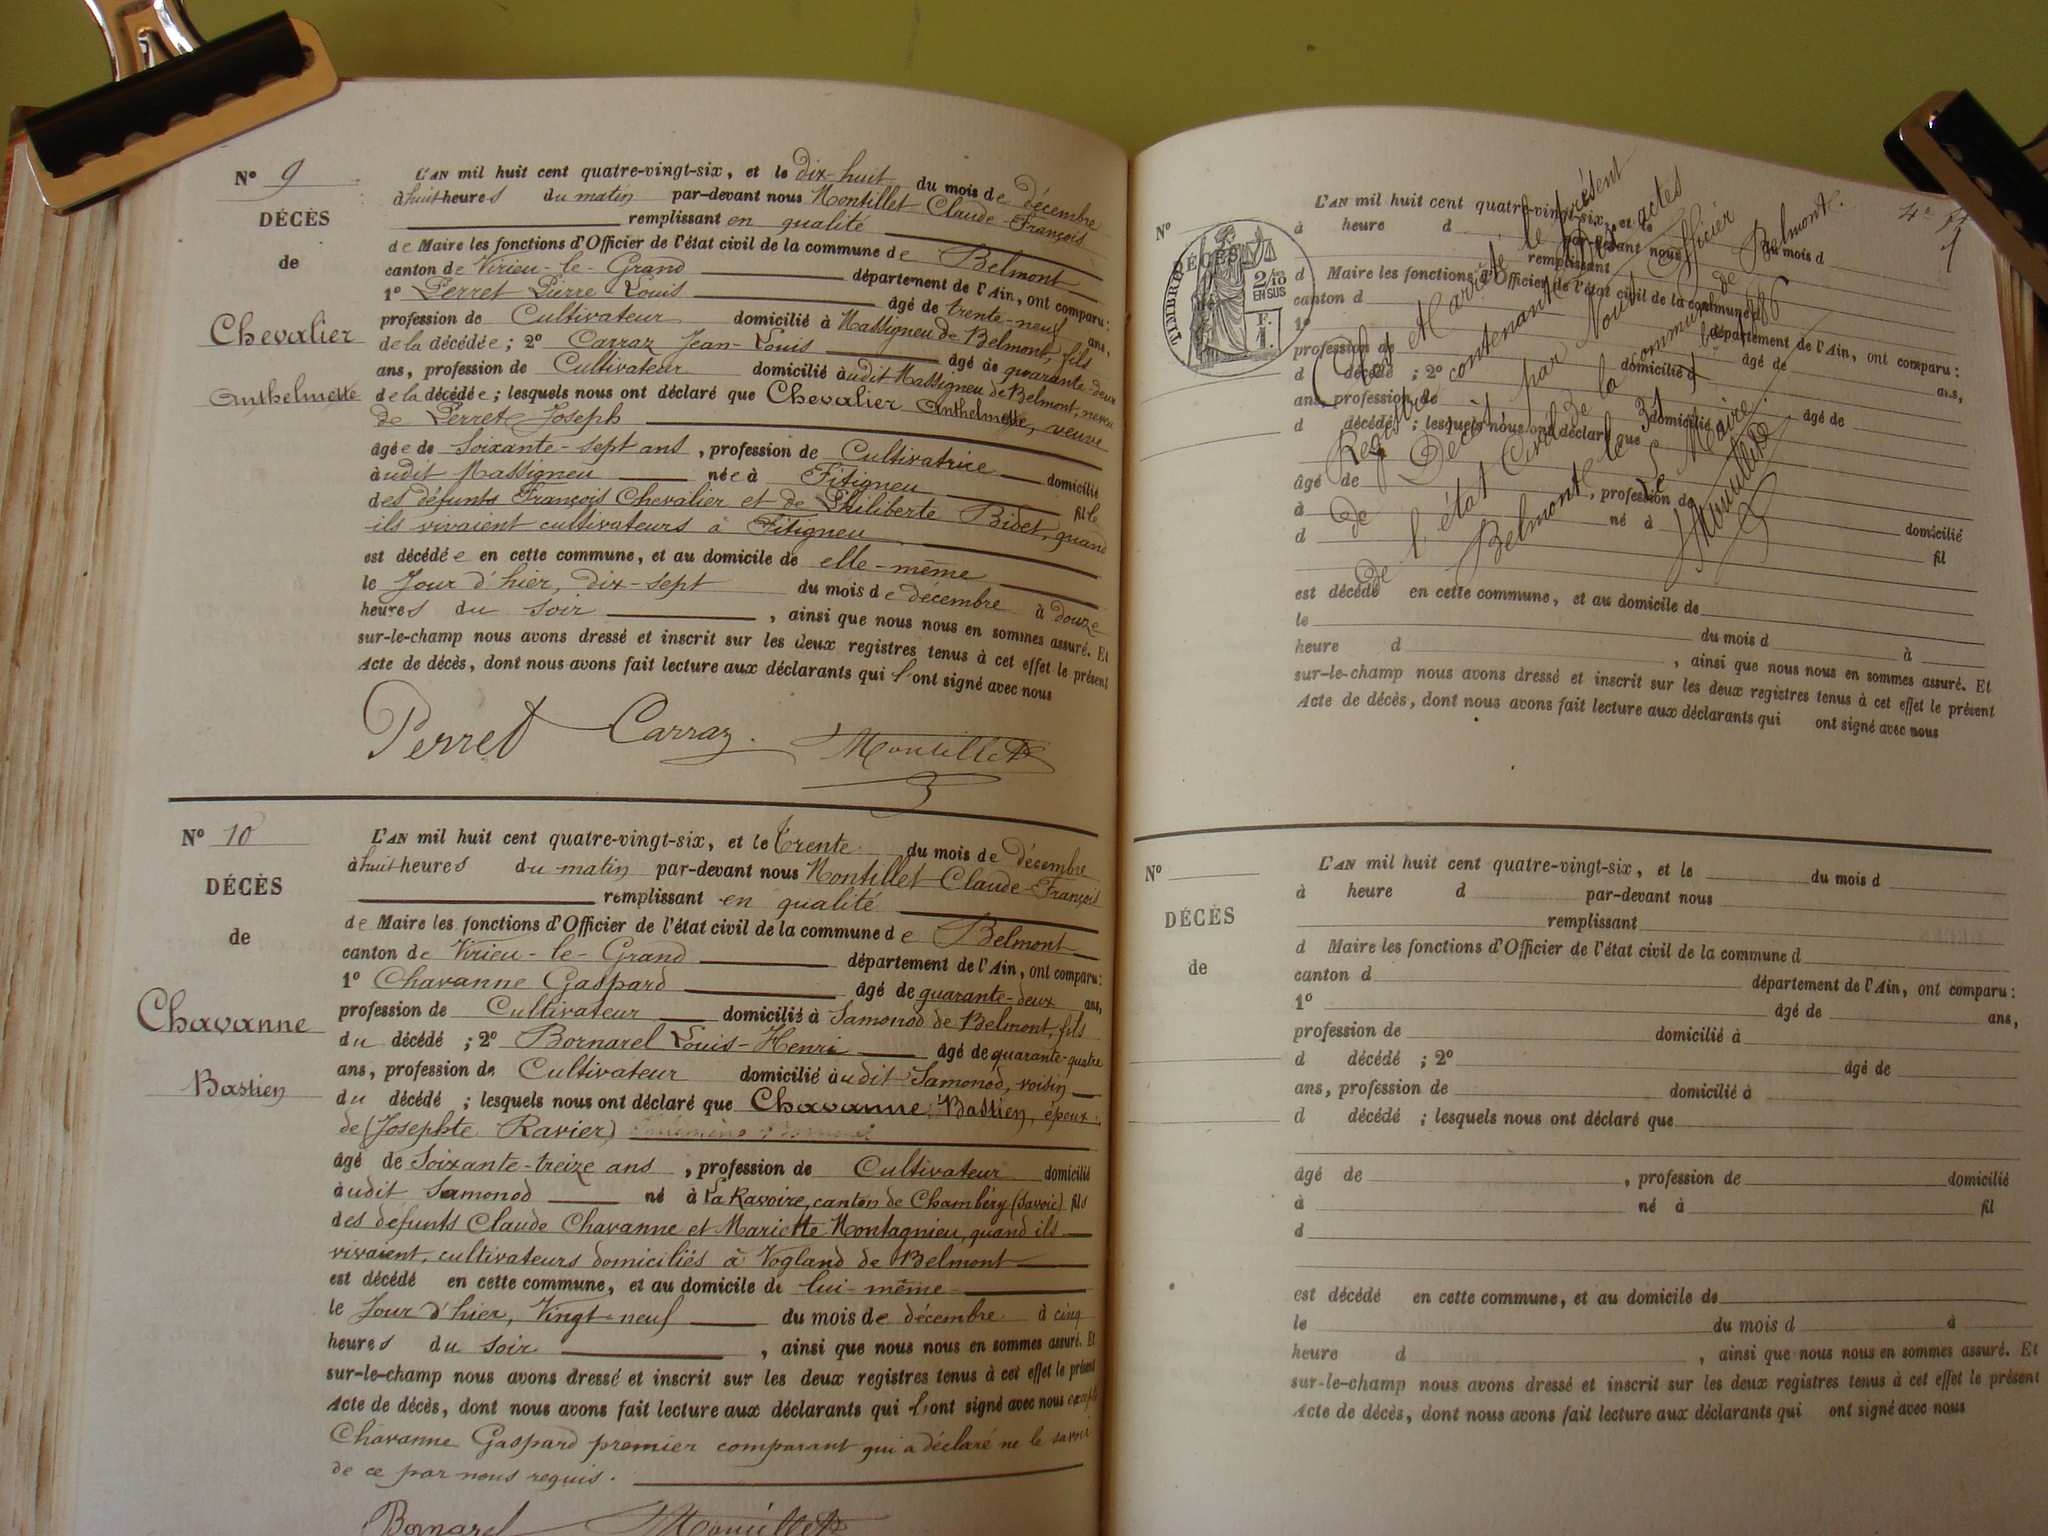 N° 9
DÉCÈS
de
Chevalier
Anthelmette
L'AN mil huit cent quatre-vingt-six, et le dix-huit du mois de décembre
à huit heures du matin par-devant nous Montillet Claude-François
remplissant en qualité
de Maire les fonctions d'Officier de l'état civil de la commune de Belmont
canton de Virieu-le-Grand département de l'Ain, ont comparu:
1° Perret Pierre Louis âgé de trente-neuf ans,
profession de Cultivateur domicilié à Massigneu de Belmont, fils
de la décédée; 2° Carraz Jean-Louis âgé de quarante-deux
ans, profession de Cultivateur domicilié audit Massigneu de Belmont, neveu
de la décédée; lesquels nous ont déclaré que Chevalier Anthelmette, veuve
de Perret Joseph
âgée de soixante-sept ans, profession de Cultivatrice domicilié
audit Massigneu née à Fitigneu fille
des défunts François Chevalier et de Philiberte Bidet, quand
ils vivaient cultivateurs à Fitigneu
est décédée en cette commune, et au domicile de elle-même
le Jour d'hier, dix-sept du mois de décembre à douze
heures du soir, ainsi que nous nous en sommes assuré. Et
sur-le-champ nous avons dressé et inscrit sur les deux registres tenus à cet effet le présent
Acte de décès, dont nous avons fait lecture aux déclarants qui l'ont signé avec nous
Perret Carraz. Montillet
N° 10
DÉCÈS
de
Chavanne
Bastien
L'AN mil huit cent quatre-vingt-six, et le trente du mois de décembre
à huit heures du matin par-devant nous Montillet Claude-François
remplissant en qualité
de Maire les fonctions d'Officier de l'état civil de la commune de Belmont
canton de Virieu-le-Grand département de l'Ain, ont comparu:
1° Chavanne Gaspard âgé de quarante-deux ans,
profession de Cultivateur domicilié à Samonod de Belmont, fils
du décédé; 2° Bornarel Louis-Henri âgé de quarante-quatre
ans, profession de Cultivateur domicilié audit Samonod, voisin
du décédé; lesquels nous ont déclaré que Chavanne Bastien, époux
de (Josephte Ravier)
âgé de soixante-treize ans, profession de Cultivateur domicilié
audit Samonod né à La Ravoire, canton de Chambéry (Savoie) fils
des défunts Claude Chavanne et Mariette Montagnieu, quand ils
vivaient, cultivateurs domiciliés à Vogland de Belmont
est décédé en cette commune, et au domicile de lui-même
le Jour d'hier, Vingt-neuf du mois de décembre à cinq
heures du soir, ainsi que nous nous en sommes assuré. Et
sur-le-champ nous avons dressé et inscrit sur les deux registres tenus à cet effet le présent
Acte de décès, dont nous avons fait lecture aux déclarants qui l'ont signé avec nous excepté
Chavanne Gaspard premier comparant qui a déclaré ne le savoir
de ce par nous requis.
Bornarel Montillet
N°
DÉCÈS
TIMBRE
2/10
EN SUS
F.
1.
L'AN mil huit cent quatre-vingt-six, et le du mois d
à heure d par-devant nous
remplissant
d Maire les fonctions d'Officier de l'état civil de la commune d
canton d département de l'Ain, ont comparu:
1° âgé de ans,
profession de domicilié à
d décédé; 2° âgé de
ans, profession de domicilié
d décédé; lesquels nous ont déclaré que
âgé de, profession de domicilié
à né à fil
d
est décédé en cette commune, et au domicile de
le du mois d à
heure d, ainsi que nous nous en sommes assuré. Et
sur-le-champ nous avons dressé et inscrit sur les deux registres tenus à cet effet le présent
Acte de décès, dont nous avons fait lecture aux déclarants qui ont signé avec nous
Clos et arrêté le présent
Registre contenant actes
de Décès par Nous Officier
de l'état Civil de la commune de Belmont.
Belmont le 31 1886
Le Maire.
Montillet
N°
DÉCÈS
de
L'AN mil huit cent quatre-vingt-six, et le du mois d
à heure d par-devant nous
remplissant
d Maire les fonctions d'Officier de l'état civil de la commune d
canton d département de l'Ain, ont comparu:
1° âgé de ans,
profession de domicilié à
d décédé; 2° âgé de
ans, profession de domicilié à
d décédé; lesquels nous ont déclaré que
âgé de, profession de domicilié
à né à fil
d
est décédé en cette commune, et au domicile de
le du mois d à
heure d, ainsi que nous nous en sommes assuré. Et
sur-le-champ nous avons dressé et inscrit sur les deux registres tenus à cet effet le présent
Acte de décès, dont nous avons fait lecture aux déclarants qui ont signé avec nous